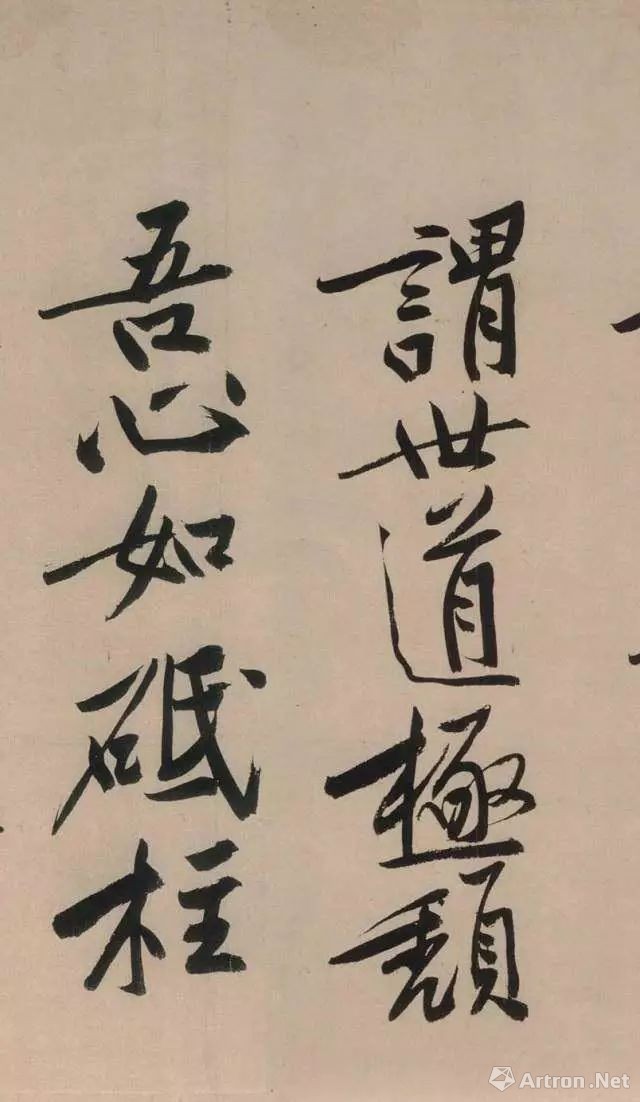 謂世道極頹
吾心如砥柱
Artron.Net